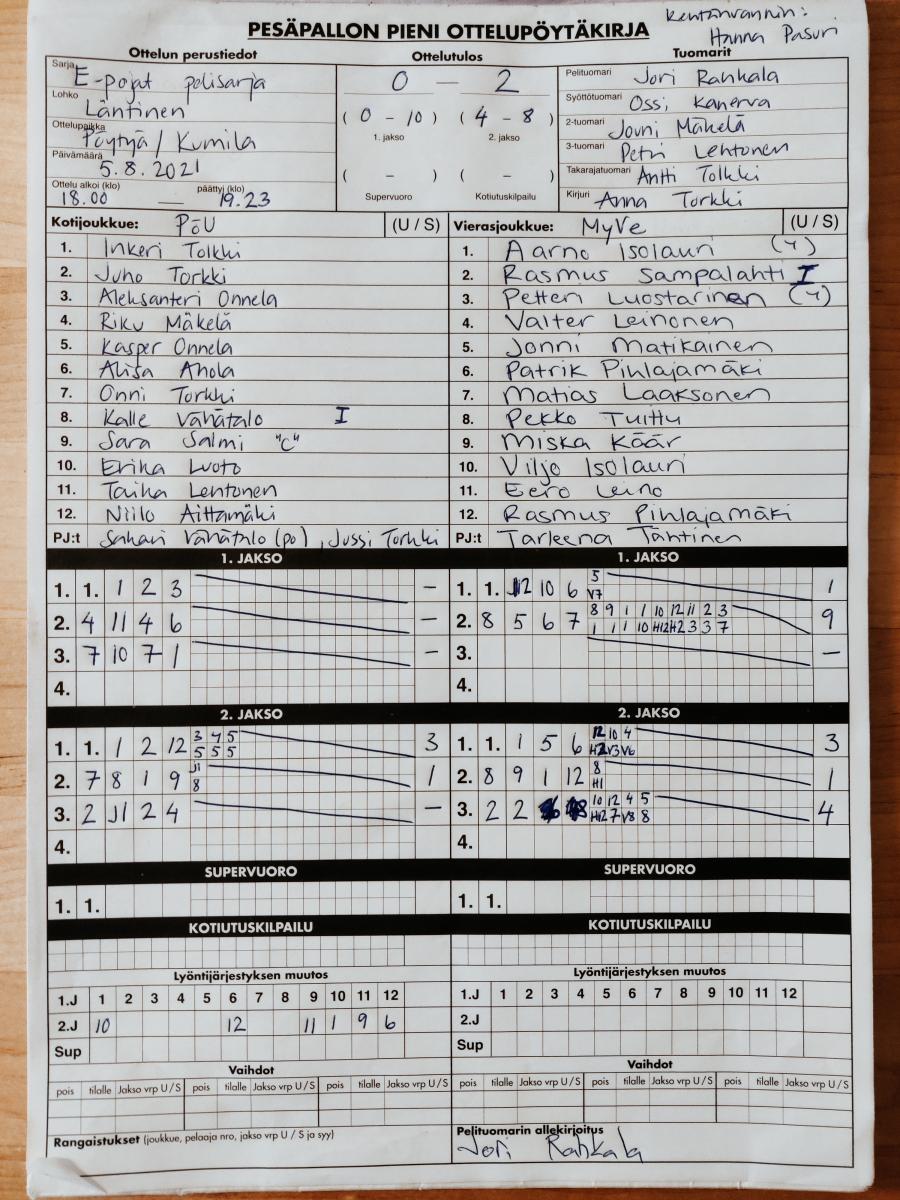 kentänvannin:
Hanna Pasuri
PESÄPALLON PIENI OTTELUPÖYTÄKIRJA
Ottelun perustiedot Ottelutulos Tuomarit
Sarja E-pojat polisarja
Lohko Läntinen
Ottelupaikka Pöytyä / Kumila
Päivämäärä 5.8.2021
Ottelu alkoi (klo) päättyi (klo)
18.00 — 19.23
0 — 2
( 0 - 10 ) ( 4 - 8 )
1. jakso 2. jakso
( - ) ( - )
Supervuoro Kotiutuskilpailu
Pelituomari Jori Rahkala
Syöttötuomari Ossi Kanerva
2-tuomari Jouni Mäkelä
3-tuomari Petri Lehtonen
Takarajatuomari Antti Tolkki
Kirjuri Anna Torkki
Kotijoukkue: PöU (U / S) Vierasjoukkue: MyVe (U / S)
1. Inkeri Tolkki 1. Aarno Isolauri (4)
2. Juho Torkki 2. Rasmus Sampalahti I
3. Aleksanteri Onnela 3. Petteri Luostarinen (4)
4. Riku Mäkelä 4. Valter Leinonen
5. Kasper Onnela 5. Jonni Matikainen
6. Aliisa Ahola 6. Patrik Pihlajamäki
7. Onni Torkki 7. Matias Laaksonen
8. Kalle Vähätalo I 8. Pekko Tuittu
9. Sara Salmi "C" 9. Miska Käär
10. Erika Luoto 10. Viljo Isolauri
11. Taika Lehtonen 11. Eero Leino
12. Niilo Aittamäki 12. Rasmus Pihlajamäki
PJ:t Sakari Vähätalo (po), Jussi Torkki PJ:t Tarleena Tähtinen
1. JAKSO 1. JAKSO
1. 1. 1 2 3 — 1. 1. 12 10 6 5 V7 1
2. 4 11 4 6 — 2. 8 5 6 7 8 9 1 1 10 12 11 2 3 9
1 1 1 10 H12 H2 3 3 7
3. 7 10 7 1 — 3. —
4. 4.
2. JAKSO 2. JAKSO
1. 1. 1 2 12 3 4 5 3 1. 1. 1 5 6 12 10 4 3
5 5 5 H2 V3 V6
2. 7 8 1 9 11 1 2. 8 9 1 12 8 1
8 H1
3. 2 11 2 4 — 3. 2 2 10 12 4 5 4
H12 7 V8 8
4. 4.
SUPERVUORO SUPERVUORO
1. 1. 1. 1.
KOTIUTUSKILPAILU KOTIUTUSKILPAILU
Lyöntijärjestyksen muutos Lyöntijärjestyksen muutos
1.J 1 2 3 4 5 6 7 8 9 10 11 12 1.J 1 2 3 4 5 6 7 8 9 10 11 12
2.J 10 12 11 1 9 6 2.J
Sup Sup
Vaihdot Vaihdot
pois tilalle Jakso vrp U / S pois tilalle Jakso vrp U / S pois tilalle Jakso vrp U / S pois tilalle Jakso vrp U / S pois tilalle Jakso vrp U / S pois tilalle Jakso vrp U / S
Rangaistukset (joukkue, pelaaja nro, jakso vrp U / S ja syy) Pelituomarin allekirjoitus
Jori Rahkala